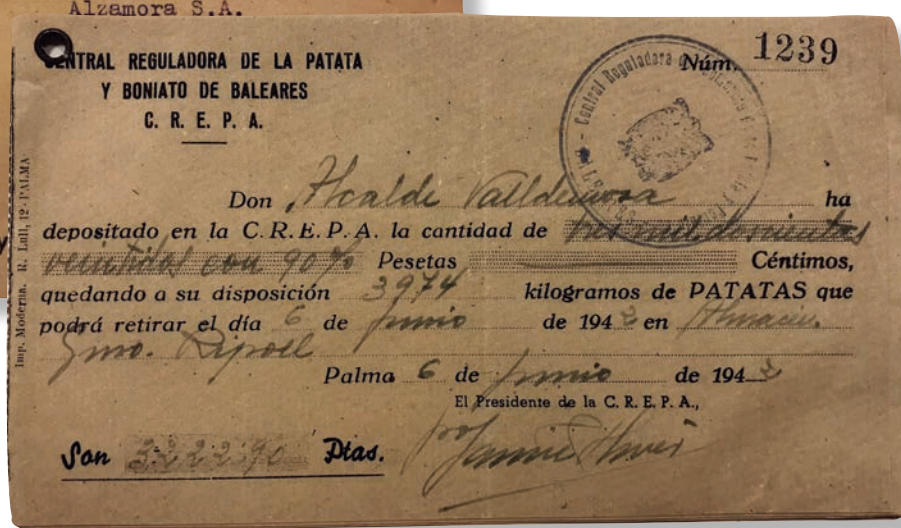 Alzamora S.A.
CENTRAL REGULADORA DE LA PATATA
Y BONIATO DE BALEARES
C. R. E. P. A.
Núm. 1239
Central Reguladora
Imp. Moderna. R. Lull, 12 - PALMA
Don Alcalde Valldemosa ha
depositado en la C. R. E. P. A. la cantidad de tres mil doscientas
veintidos con 90% Pesetas Céntimos,
quedando a su disposición 3974 kilogramos de PATATAS que
podrá retirar el día 6 de junio de 194 en Almacen.
Gmo. Ripoll
Palma 6 de junio de 194
El Presidente de la C. R. E. P. A.,
Son 3.222'90 Ptas.
y